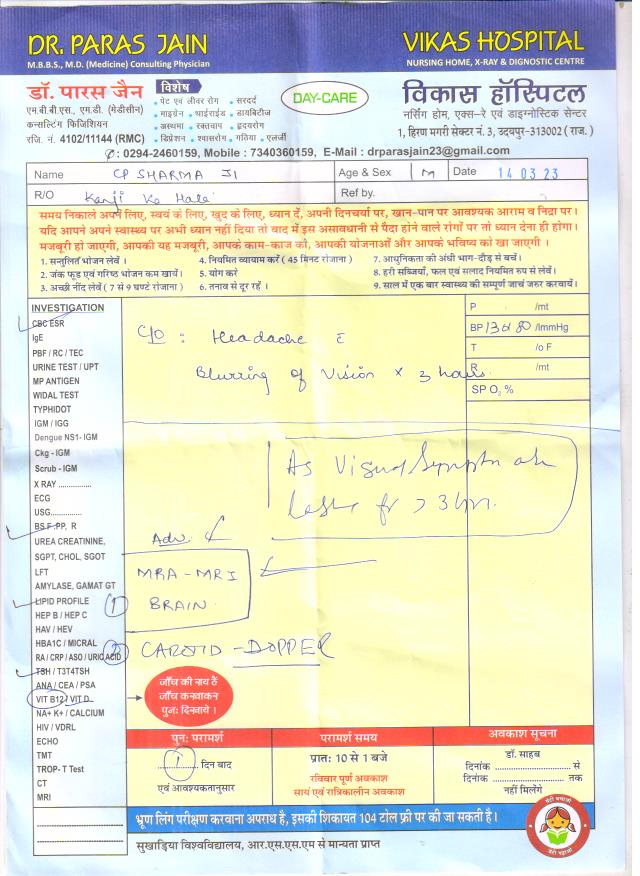 DR. PARAS JAIN
M.B.B.S., M.D. (Medicine) Consulting Physician
VIKAS HOSPITAL
NURSING HOME, X-RAY & DIGNOSTIC CENTRE
डॉ. पारस जैन
एम.बी.बी.एस., एम.डी. (मेडीसीन)
कन्सल्टिंग फिजिशियन
रजि. नं. 4102/11144 (RMC)
विशेष
• पेट एवं लीवर रोग • सरदर्द
• माइग्रेन • थाईराईड • डायबिटीज
• अस्थमा • रक्तचाप • हृदयरोग
• डिप्रेशन • श्वासरोग • गठिया • एलर्जी
DAY-CARE
विकास हॉस्पिटल
नर्सिंग होम, एक्स-रे एवं डाइग्नोस्टिक सेन्टर
1, हिरण मगरी सेक्टर नं. 3, उदयपुर-313002 ( राज. )
: 0294-2460159, Mobile : 7340360159, E-Mail : drparasjain23@gmail.com
Name CP SHARMA JI Age & Sex M Date 14 03 23
R/O Kanji Ka Hata Ref by.
समय निकाले अपने लिए, स्वयं के लिए, खुद के लिए, ध्यान दें, अपनी दिनचर्या पर, खान-पान पर आवश्यक आराम व निद्रा पर।
यदि आपने अपने स्वास्थ्य पर अभी ध्यान नहीं दिया तो बाद में इस असावधानी से पैदा होने वाले रोगों पर तो ध्यान देना ही होगा।
मजबूरी हो जाएगी, आपकी यह मजबूरी, आपके काम-काज को, आपकी योजनाओं और आपके भविष्य को खा जाएगी ।
1. सन्तुलित भोजन लेवें । 4. नियमित व्यायाम करें ( 45 मिनट रोजाना ) 7. आधुनिकता की अंधी भाग-दौड़ से बचें।
2. जंक फूड एवं गरिष्ठ भोजन कम खायें। 5. योग करें 8. हरी सब्जियां, फल एवं सलाद नियमित रुप से लेवें।
3. अच्छी नींद लेवें ( 7 से 9 घण्टे रोजाना ) 6. तनाव से दूर रहें । 9. साल में एक बार स्वास्थ्य की सम्पूर्ण जाचं जरुर करवायें।
INVESTIGATION
CBC ESR
IgE
PBF / RC / TEC
URINE TEST / UPT
MP ANTIGEN
WIDAL TEST
TYPHIDOT
IGM / IGG
Dengue NS1- IGM
Ckg - IGM
Scrub - IGM
X RAY ...............
ECG
USG..............
BS F, PP, R
UREA CREATININE,
SGPT, CHOL, SGOT
LFT
AMYLASE, GAMAT GT
LIPID PROFILE
HEP B / HEP C
HAV / HEV
HBA1C / MICRAL
RA / CRP / ASO / URIC ACID
TSH / T3T4TSH
ANA / CEA / PSA
VIT B12 / VIT D
NA+ K+ / CALCIUM
HIV / VDRL
ECHO
TMT
TROP- T Test
CT
MRI
P /mt
BP 130/80 /lmmHg
T /o F
R /mt
SP O₂ %
C/O : Headache
Blurring of Vision x 3 hours.
As Visual Symptom
for > 3 hrs.
Adv.
① MRA-MRI
BRAIN
② CAROTID-DOPPER
जाँच की राय हैं
जाँच करवाकर
पुनः दिखावे ।
पुनः परामर्श
1 दिन बाद
एवं आवश्यकतानुसार
परामर्श समय
प्रातः 10 से 1 बजे
रविवार पूर्ण अवकाश
सायं एवं रात्रिकालीन अवकाश
अवकाश सूचना
डॉ. साहब
दिनांक .......................... से
दिनांक .......................... तक
नहीं मिलेंगे
भ्रूण लिंग परीक्षण करवाना अपराध है, इसकी शिकायत 104 टोल फ्री पर की जा सकती है।
सुखाड़िया विश्वविद्यालय, आर.एस.एस.एम से मान्यता प्राप्त
बेटी बचाओ
बेटी पढ़ाओ